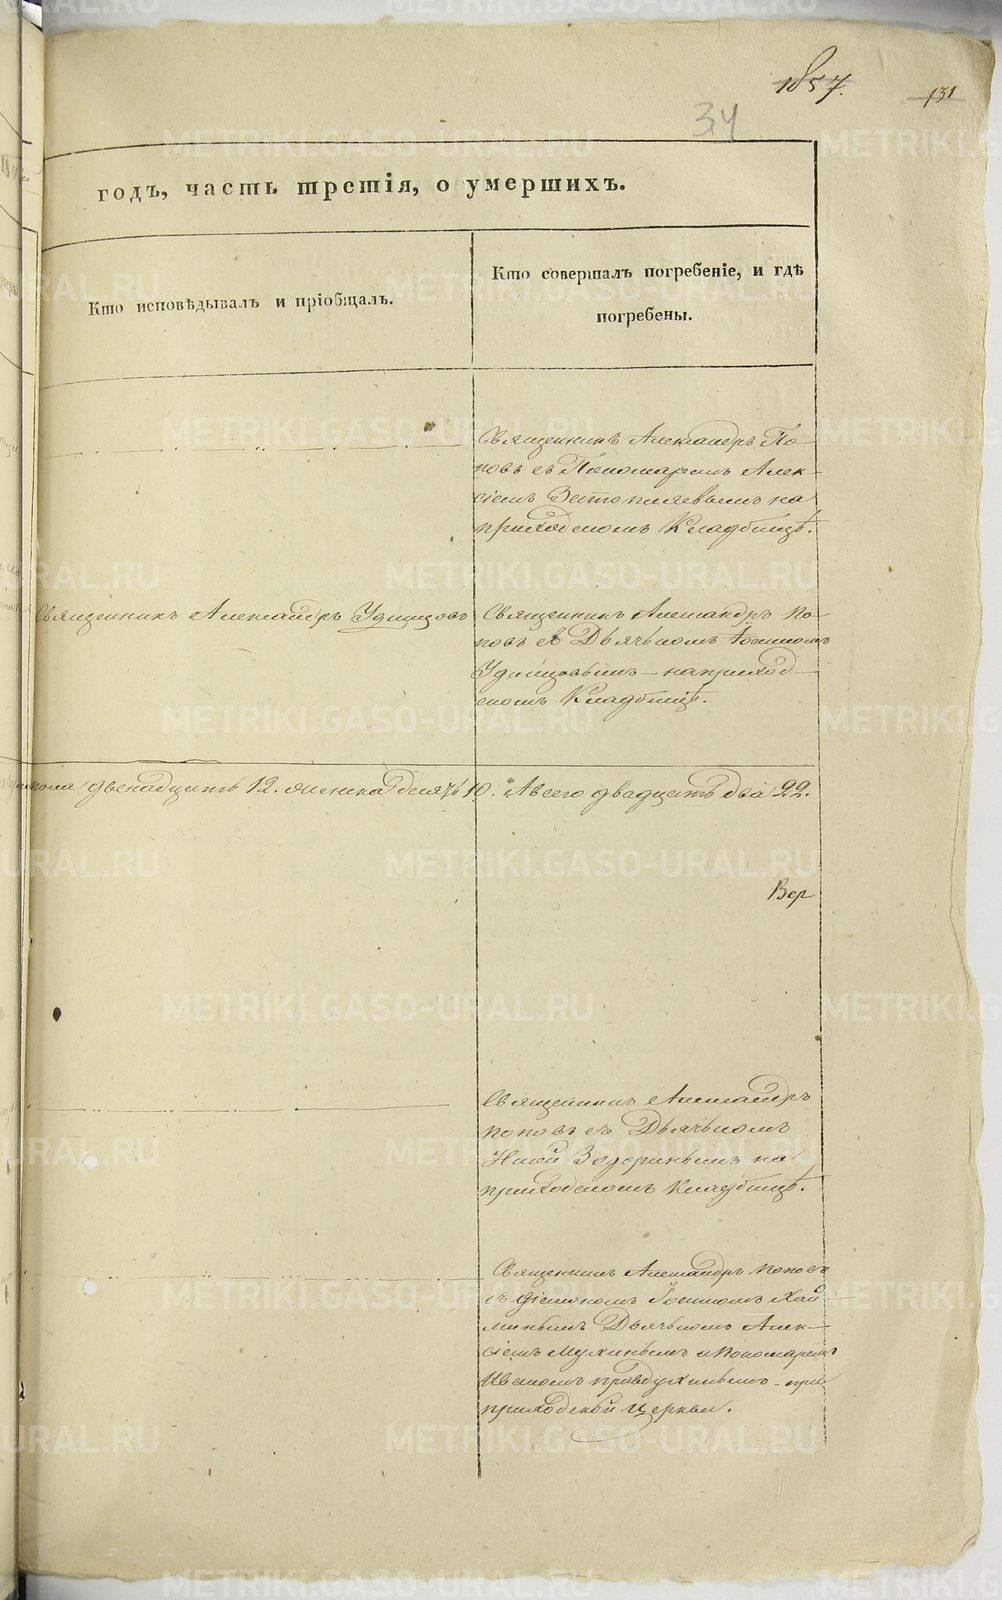 1857.
131
34
годъ, часть третія, о умершихъ.
Кто исповѣдывалъ и пріобщалъ.
Кто совершалъ погребеніе, и гдѣ
погребены.
Священникъ Александръ По-
повъ съ Пономаремъ Алек-
сіемъ Затопляевымъ на
приходскомъ Кладбищѣ.
Священникъ Александръ Удинцовъ
Священникъ Александръ По-
повъ съ Дьячькомъ Іоанномъ
Удинцовымъ на приход-
скомъ Кладбищѣ.
пола двенадцать 12. женска десять 10. А всего двадцать два 22.
Вер
Священникъ Александръ
Поповъ съ Дьячькомъ
на
приходскомъ Кладбищѣ.
Священникъ Александръ Поповъ
съ Діакономъ Іоанномъ
Дьячькомъ Алек-
сіемъ Мухинымъ и Пономаремъ
Иваномъ при
приходской церкви.
METRIKI.GASO-URAL.RU